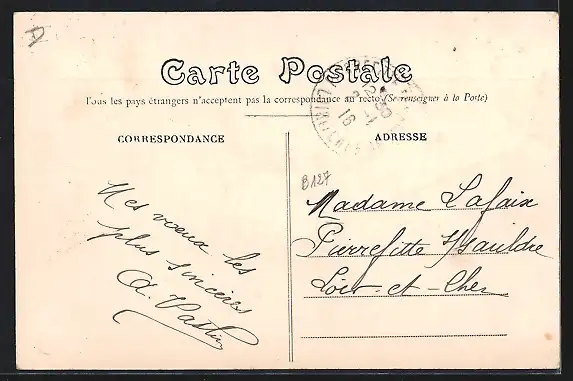 Carte Postale
Tous les pays étrangers n'acceptent pas la correspondance au recto (Se renseigner à la Poste)
CORRESPONDANCE
ADRESSE
B127
Mes voeux les
plus sincères
Madame Lafaix
Pierrefitte s/Sauldre
Loir-et-Cher